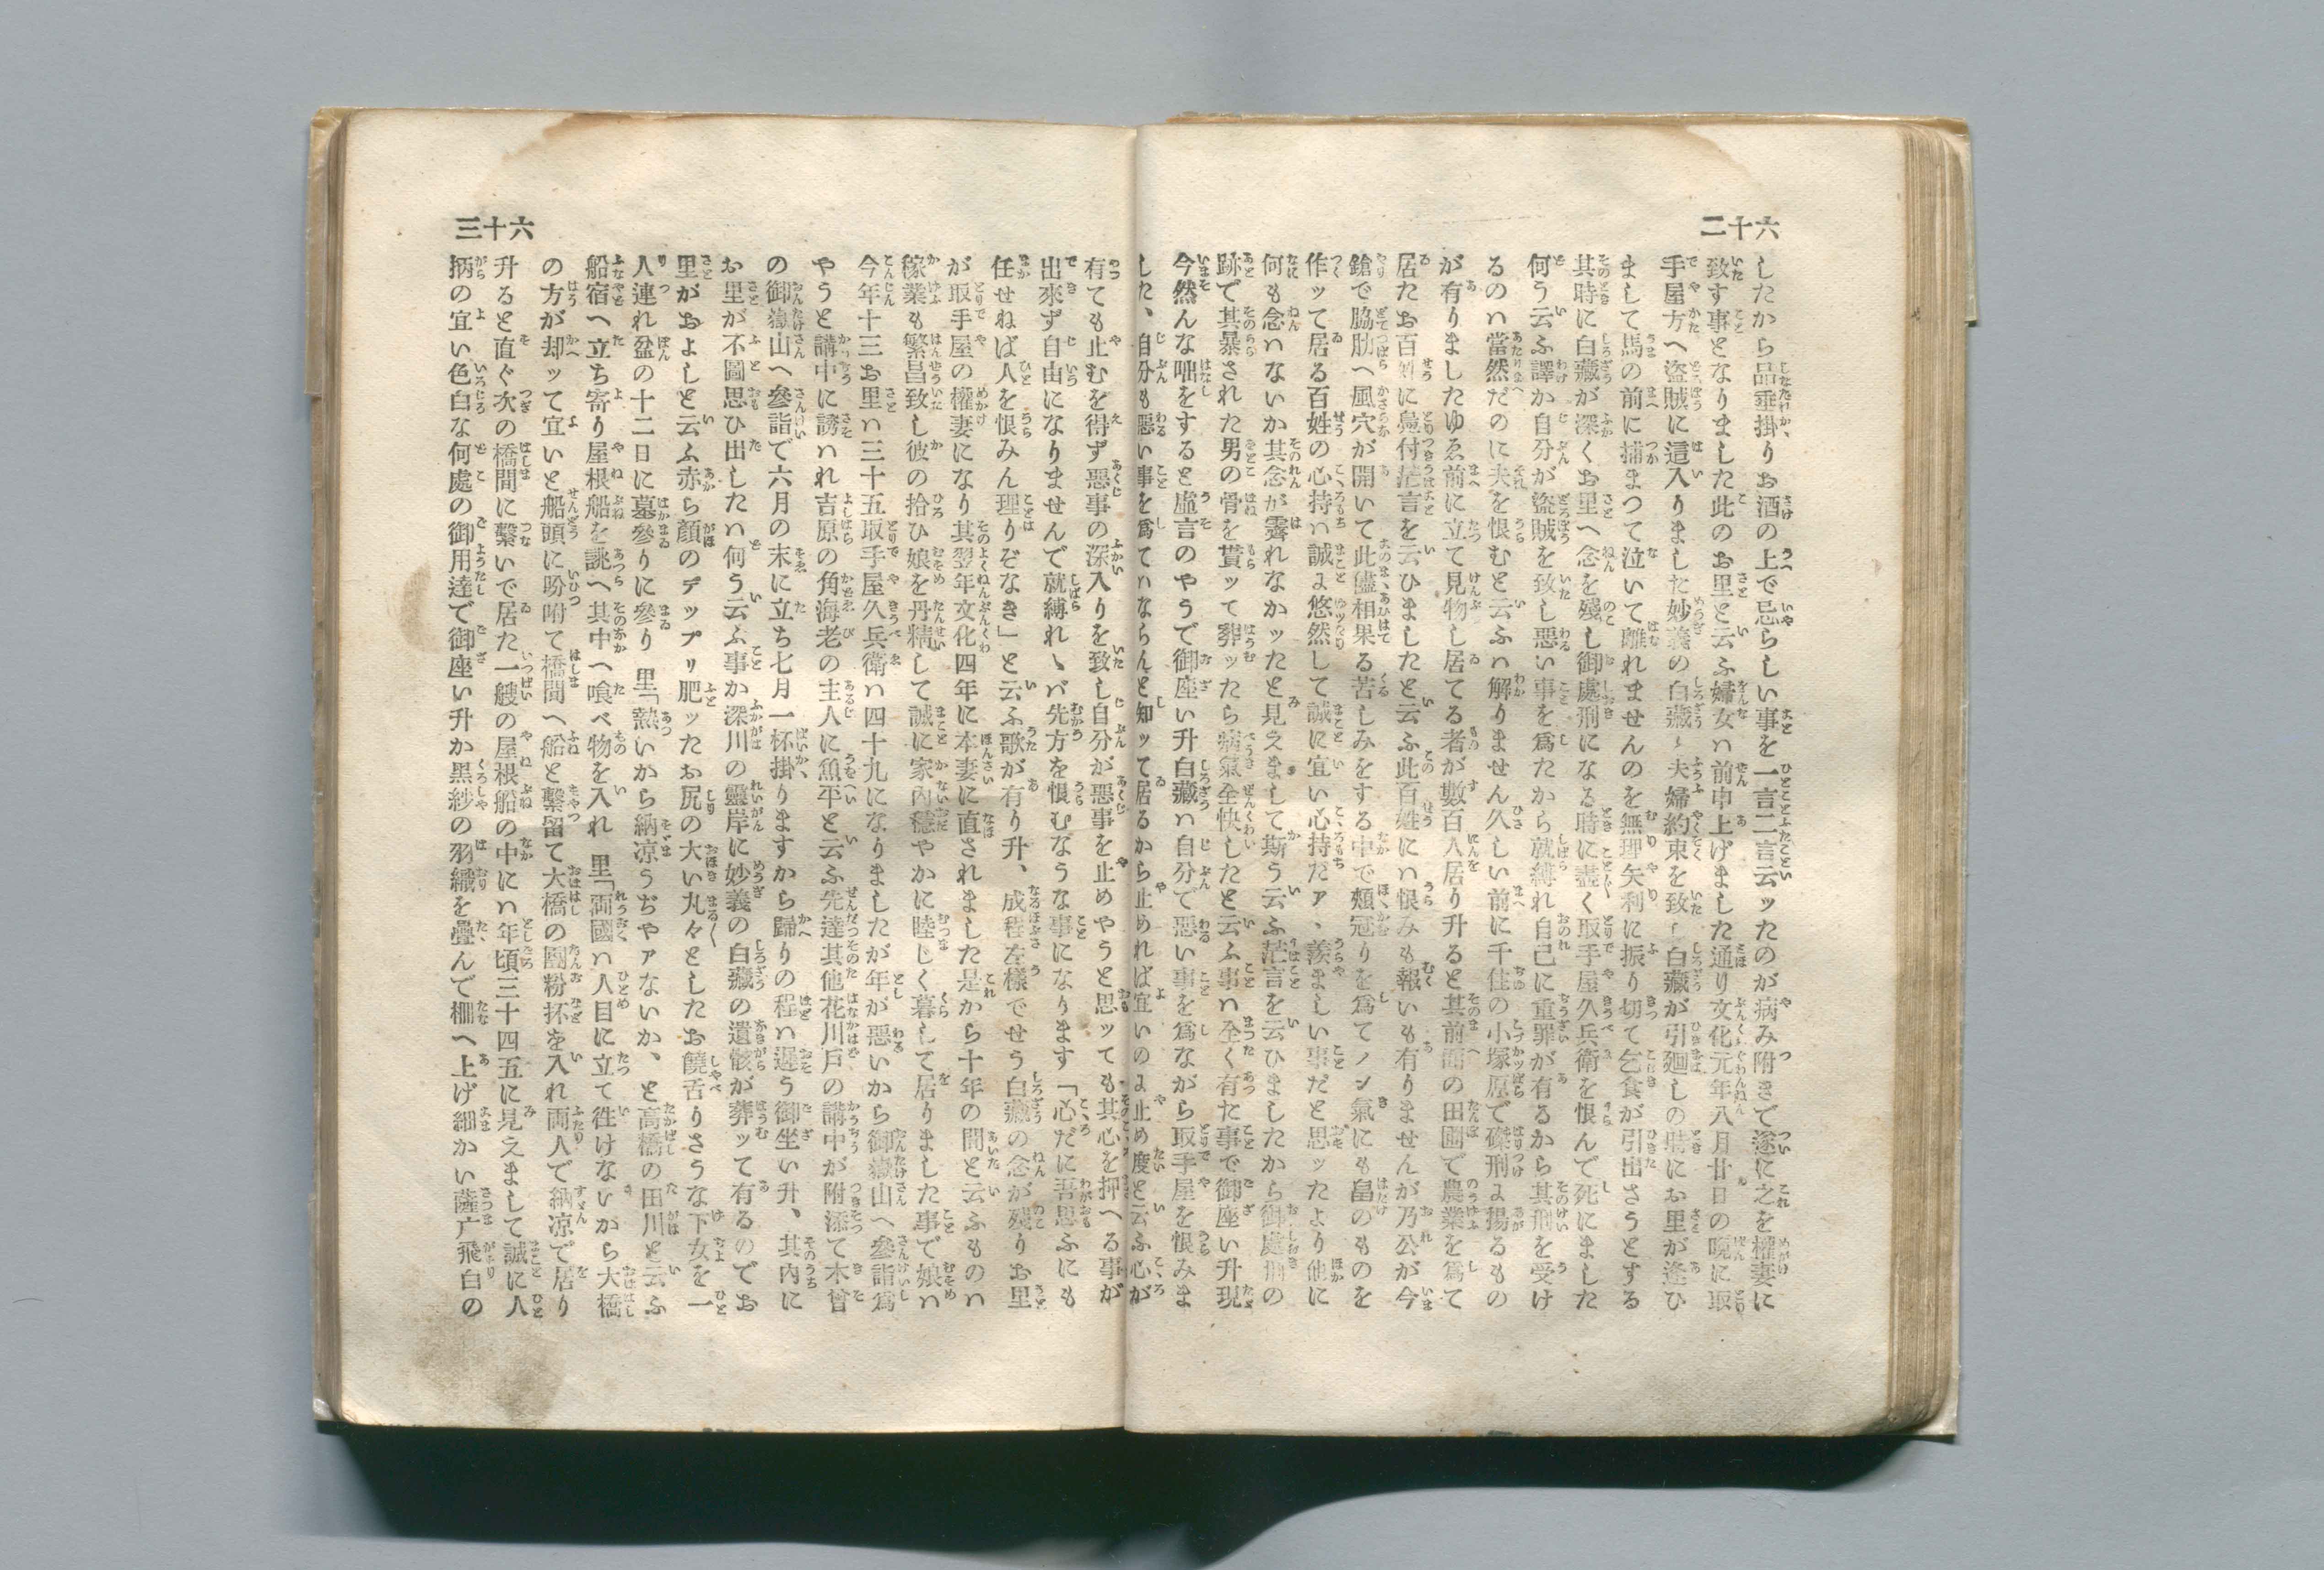 二十六
したから品垂掛りお酒の上で忌らしい事を一言二言云ッたのが病み附きで遂に之を權妻に
致す事となりました此のお里と云ふ婦女ハ前申上げました通り文化元年八月廿日の晩に取
手屋方へ盜賊に這入りました妙義の白藏と夫婦約束を致し白藏が引廻しの時にお里が逢ひ
まして馬の前に捕まつて泣いて離れませんのを無理矢利に振り切て乞食が引出さうとする
其時に白藏が深くお里へ念を殘し御處刑になる時に盡く取手屋久兵衛を恨んで死にました
何う云ふ譯か自分が盜賊を致し悪い事を爲たから就縛れ自己に重罪が有るから其刑を受け
るのハ當然だのに夫を恨むと云ふハ解りません久しい前に千住の小塚原で磔刑よ揚るもの
が有りましたゆゑ前に立て見物し居てる者が數百人居り升ると其前面の田圃で農業を爲て
居たお百姓に飛付茫言を云ひましたと云ふ此百姓にハ恨みも報いも有りませんが乃公が今
鎗で脇肋へ風穴が開いて此儘相果る苦しみをする中で頬冠りを爲てノン氣にも畠のものを
作ッて居る百姓の心持ハ誠よ悠然して誠に宜い心持だァ、羨ましい事だと思ッたより他に
何も念ハないか其念が霽れなかッたと見えまして斯う云ふ茫言を云ひましたから御處刑の
跡で其暴された男の骨を貰ッて葬ッたら病氣全快したと云ふ事ハ全く有た事で御座い升現
今然んな咄をすると虛言のやうで御座い升白藏ハ自分で悪い事を爲ながら取手屋を恨みま
した、自分も悪い事を爲てハならんと知ッて居るから止めれば宜いのよ止め度と云ふ心が
三十六
有ても止むを得ず悪事の深入りを致し自分が悪事を止めやうと思ッても其心を押へる事が
出來ず自由になりませんで就縛れゝバ先方を恨むなうな事になります「心だに吾思ふにも
任せねば人を恨みん理りぞなき」と云ふ歌が有り升、成程左樣でせう白藏の念が殘りお里
が取手屋の權妻になり其翌年文化四年に本妻に直されました是から十年の間と云ふものハ
稼業も繁昌致し彼の拾ひ娘を丹精して誠に家內穩やかに陸じく暮して居りました事で娘ハ
今年十三お里ハ三十五取手屋久兵衛ハ四十九になりましたが年が悪いから御嶽山へ參詣爲
やうと講中に誘ハれ吉原の角海老の主人に魚平と云ふ先達其他花川戸の講中が附添て木曾
の御嶽山へ參詣で六月の末に立ち七月一杯掛りますから歸りの程ハ遲う御坐い升、其內に
お里が不圖思ひ出したハ何う云ふ事か深川の靈岸に妙義の白藏の遺骸が葬ッて有るのでお
里がおよしと云ふ赤ら顔のデップリ肥ッたお尻の大い丸々としたお饒舌りさうな下女を一
人連れ盆の十二日に墓參りに參り 里「熱いから納凉うぢやァないか、と高橋の田川と云ふ
船宿へ立ち寄り屋根船を誂へ其中へ喰べ物を入れ 里「兩國ハ人目に立て徃けないがら大橋
の方が却ッて宜いと船頭に吩咐て橋間へ船と繫留て大橋の團粉抔を入れ両人で納凉で居り
升ると直ぐ次の橋間に繫いで居た一艘の屋根船の中にハ年頃三十四五に見えまして誠に人
抦の宜い色白な何處の御用達で御座い升か黒紗の羽織を疊んで棚へ上げ細かい薩广飛白の